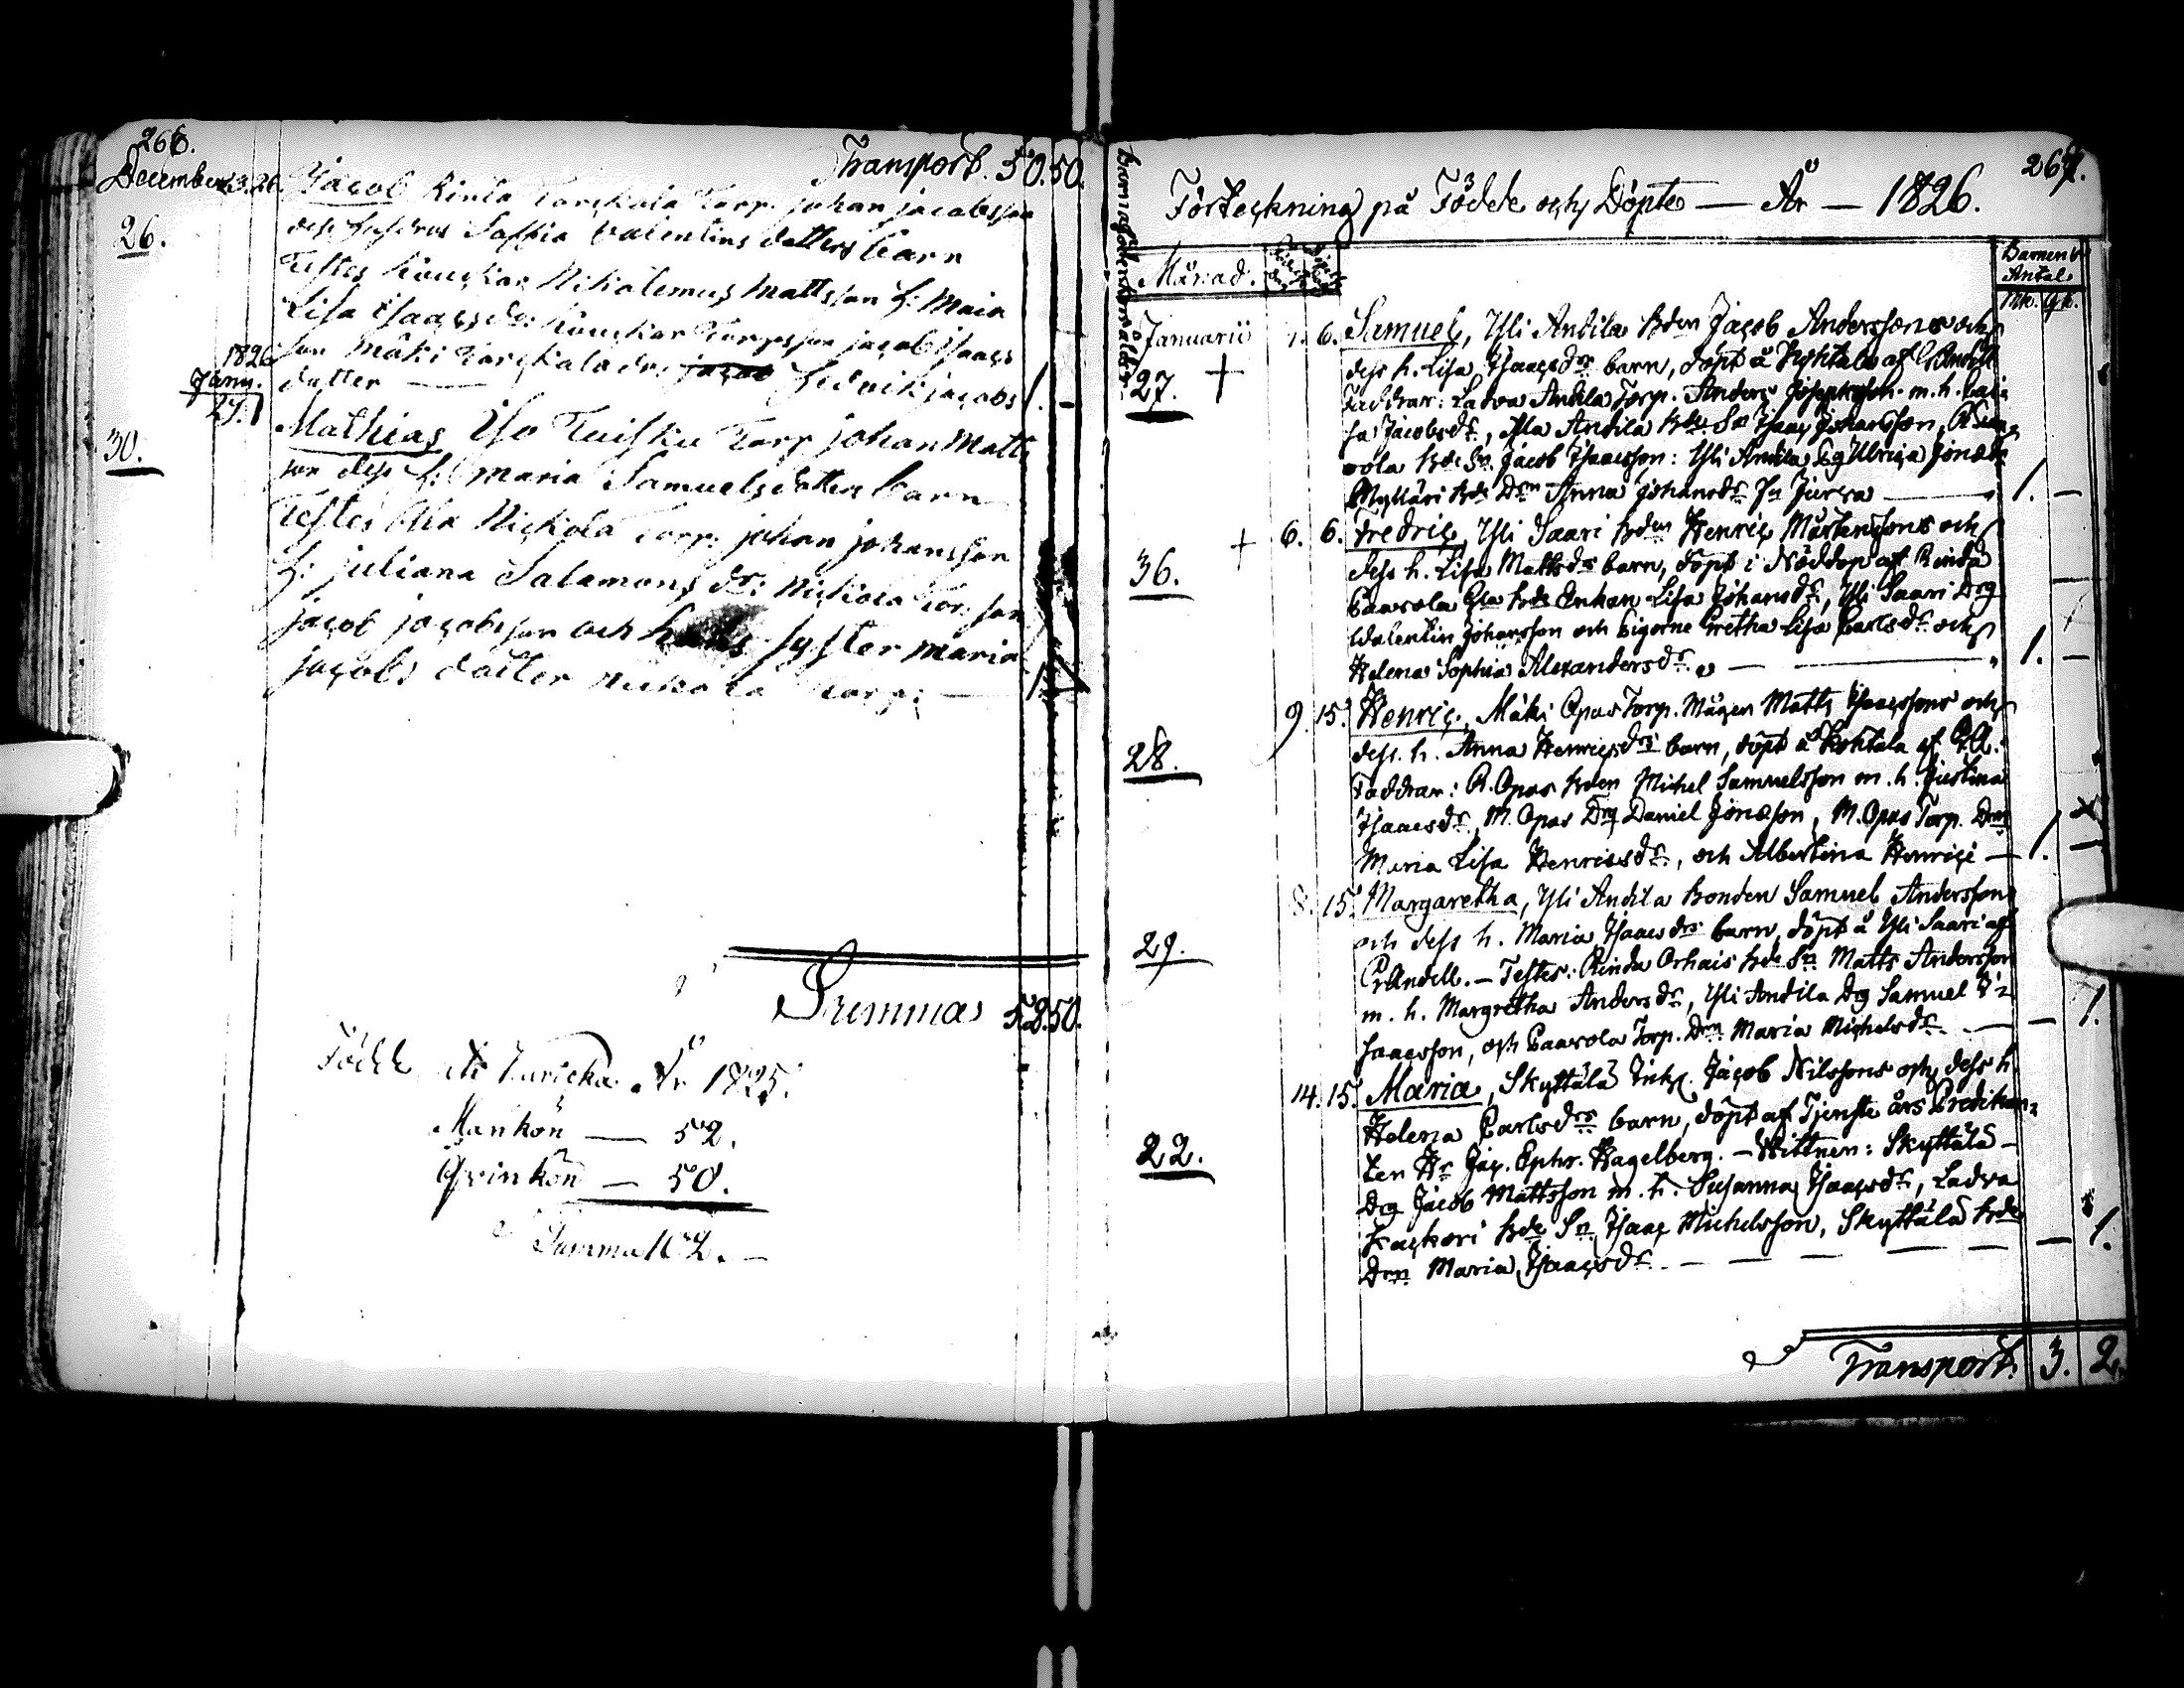 266.
Transport. 50. 50.
December 23. 26.
Jacob Rinta Torckala Torp. johan jacobsson
dess hustrus Saffia Valentins datters barn
26.
Testes Nikolemus Mattsson h: Maia
Lisa Isaacsdr: jacob Isaacs
1826
son Mäki Torckala dr. Hedvik jacobs
Janu.
datter — 1. —
29.
Mathias Iso Tuisku Torp johan Matts
30.
son dess h: Maria Samuels datters barn
Testes Nickola Torp. johan johansson
h: juliana Salamons dr: Nickola Torp. son
jacob jacobsson och hans syster maria
jacobs datter Nickola Torp: — 1.
Summa 52. 50.
Födde uti År 1825.
Mankön — 52.
Qvinkön — 50.
Summa 102. —
267.
Förteckning på Födde och Döpte — År — 1826.
Barnaföderskors ålder
Månad.
Barnens
Antal.
Mk. Qk.
Januarii 1. 6. Samuel, Yli Antila Bden Jacob Anderssons och
27. + dess h. Lisa Isaacsdrs barn, döpt å Kyhtälä af
Faddrar: Ladva Antila Torp. Anders Josephsson m. h. Cai
sa Jacobsdr, Antila Bde Sn Isaac Johansson,
vola Bde Sn Jacob Isaacsson: Yli Antila Ulrica Jonædr
Mylläri Bde Drn Anna Johansdr — 1. —
+ 6. 6. Fredric, Yli Saari Bden Henric Mårtenssons och
36. dess h. Lisa Mattsdrs barn, döpt i Nöddop af Rinda
Paavola Bde Enkan Lisa Johansdr, Yli Saari Drg
Valentin Johansson och Pigorne Gretha Lisa Carlsdr och
Helena Sophia Alexandersdr. — 1. —
9. 15. Henric, Mäki Opas Torp. Mågen Matts Isaacssons och
28. dess. h. Anna Henricsdrs barn, döpt å Kyhtälä af
Faddrar: R. Opas Bden Michel Samuelsson m. h. Justina
Isaacsdr, M. Opas Drg Daniel Jonæson, M. Opas Torp. Drn
Maria Lisa Henricsdr, och Albertina Henrici — 1. —
8. 15. Margaretha, Yli Antila Bonden Samuel Andersson
29. och dess h. Maria Isaacsdrs barn, döpt å Yli Saari af
— Testes: Rinda Orhais Bde Sn Matts Andersson
m. h. Margretha Andersdr, Yli Antila Drg Samuel I
saacsson, och Paavola Torp. Drn Maria Michelsdr — — 1.
14. 15. Maria, Skyttälä Inh. Jacob Nilssons och dess h.
22. Helena Carlsdrs barn, döpt af Tjenste års Predikan
ten Hr Jac. Ephr. Hagelberg. — Wittnen: Skyttälä
Drg Jacob Mattsson m. h. Susanna Isaacsdr, Ladva
Kackori Bde Sn Isaac Michelsson, Skyttälä Bde
Drn Maria Isaacsdr — — — — — 1.
Transport. 3. 2.